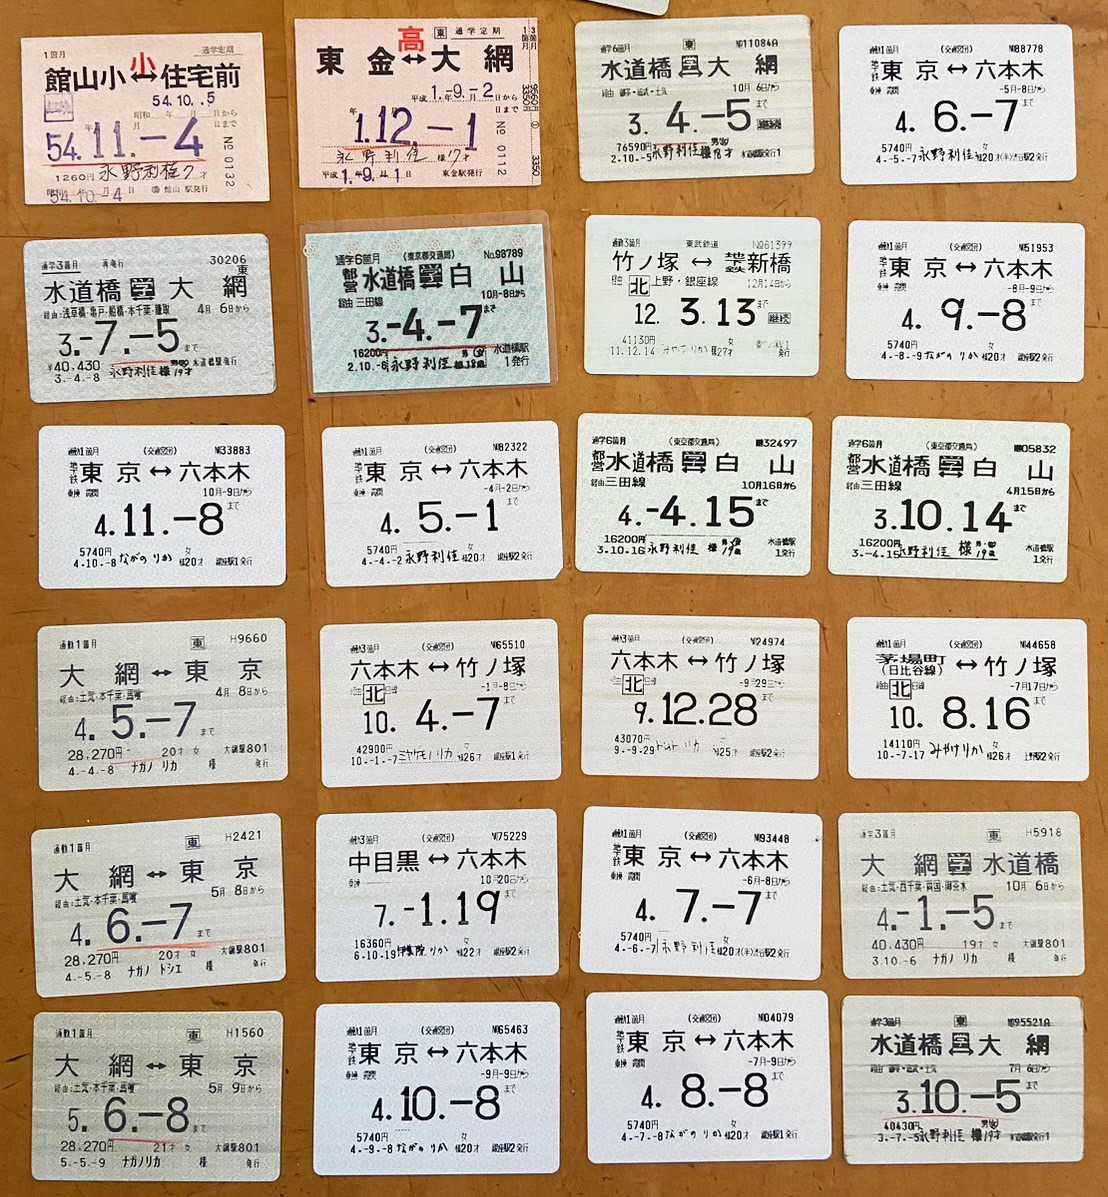 1箇月 通学定期
小
館山小↔住宅前
54.10..5
昭和 年 月 日から
年 月 日まで
54.11.-4
1260円 永野利佳7才
54.10.-4 館山駅発行
No 0132
高 東 通学定期
東金↔大網
平成1.-9.-2日から
日まで
1.12-1
永野利佳 様17才
平成1.9.1日 東金駅発行
No 0112
通学6箇月 東 №11084A
水道橋 大網
10月 6日から
3. 4.-5まで
継続
76590円
2.-10.-5永野利佳様 水道橋駅発行1
通勤1箇月 (交通営団) №88778
地下鉄 東京↔六本木
-5月-8日から
4. 6.-7まで
5740円 女
4.-5.-7永野利佳様20才(半)渋谷駅2発行
通学3箇月 再発行 30206
東
水道橋 大網
経由:浅草橋・亀戸・船橋・本千葉・鎌取 4月 6日から
3.-7.-5まで
¥40,430- 水道橋駅発行
3.-4.-8 永野利佳様19才
通学6箇月 (東京都交通局) No.98789
都営 水道橋 白山
経由 三田線 10月-8日から
3.-4.-7まで
16200円 水道橋駅
2.10.-6永野利佳様18歳 1発行
通勤3箇月 東武鉄道 №61399
竹ノ塚↔新橋
経由 北 上野・銀座線 12月14日から
12. 3.13まで
継続
41130円 女
11.12.14 様27才 発行
通勤1箇月 (交通営団) №51953
地下鉄 東京↔六本木
-8月-9日から
4. 9.-8まで
5740円 女
4.-8.-9ながのりか様20才 銀座駅2発行
通勤1箇月 (交通営団) №33883
地下鉄 東京↔六本木
10月-9日から
4.11.-8まで
5740円 女
4.10.-8 ながのりか 様20才 銀座駅1発行
通勤1箇月 (交通営団) №82322
地下鉄 東京↔六本木
-4月-2日から
4. 5.-1まで
5740円 女
4.-4.-2永野利佳様20才 銀座駅2発行
通学6箇月 (東京都交通局) 32497
都営 水道橋 白山
経由三田線 10月16日から
4.-4.15まで
16200円 水道橋駅
3.10.16永野利佳 様19歳 1発行
通学6箇月 (東京都交通局) 05832
都営 水道橋 白山
経由三田線 4月15日から
3.10.14まで
16200円 水道橋駅
3.-4.15永野利佳 様19歳 1発行
通勤1箇月 東 H9660
大網↔東京
経由:土気・本千葉・馬喰 4月 8日から
4. 5.-7まで
28,270円- 20才 女 大網駅801
4.-4.-8 ナガノ リカ 様 発行
通勤3箇月 (交通営団) №65510
六本木↔竹ノ塚
北 -1月-8日から
10. 4.-7まで
42900円 女
10.-1.-7ミヤケモノリカ様26才 銀座駅1発行
通勤3箇月 (交通営団) №24974
六本木↔竹ノ塚
北 -9月29日から
9.12.28まで
43070円
9.-9.29 様25才 銀座駅2発行
通勤1箇月 (交通営団) №44658
茅場町(日比谷線)↔竹ノ塚
北 -7月17日から
10. 8.16まで
14110円 女
10.-7.17 みやけりか 様26才 上野駅2発行
通勤1箇月 東 H2421
大網↔東京
経由:土気・本千葉・馬喰 5月 8日から
4. 6.-7まで
28,270円 20才 女 大網駅801
4.-5.-8 ナガノ トシエ 様 発行
通勤3箇月 (交通営団) №75229
中目黒↔六本木
10月20日から
7.-1.19まで
16360円 女
6.10.19 りか 様22才 銀座駅2発行
通勤1箇月 (交通営団) №93448
地下鉄 東京↔六本木
-6月-8日から
4. 7.-7まで
5740円 女
4.-6.-7永野利佳様20才(半)渋谷駅2発行
通学3箇月 東 H5918
大網 水道橋
経由:土気・西千葉・両国・御茶水 10月 6日から
4.-1.-5まで
40,430円 19才 女 大網駅801
3.10.-6 ナガノ リカ 様 発行
通勤1箇月 東 H1560
大網↔東京
経由:土気・本千葉・馬喰 5月 9日から
5. 6.-8まで
28,270円 21才 女 大網駅801
5.-5.-9 ナガノリカ 様 発行
通勤1箇月 (交通営団) №65463
地下鉄 東京↔六本木
-9月-9日から
4.10.-8まで
5740円 女
4.-9.-8 ながのりか様20才 銀座駅2発行
通勤1箇月 (交通営団) №04079
地下鉄 東京↔六本木
-7月-9日から
4. 8.-8まで
5740円 女
4.-7.-8ながのりか様20才 銀座駅1発行
通学3箇月 東 №95521A
水道橋 大網
7月 6日から
3.10.-5まで
40430円
3.-7.-5永野利佳 様19才 水道橋駅発行1